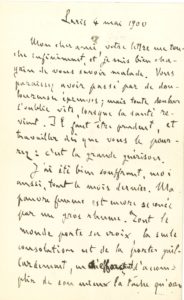 Paris 4 mai 1900
Mon cher ami, votre lettre me tou-
che infiniment, et je suis bien cha-
grin de vous savoir malade. Vous
paraissez avoir passé par de dou-
loureuses ; mais toute douleur
s'oublie vite, lorsque la santé re-
vient. Il faut être prudent, et
travailler dès que vous le pour-
rez : c'est la grande guérison.
J'ai été bien souffrant, moi
aussi, tout le mois dernier. Ma
pauvre femme est encore secouée
par un gros rhume. Tout le
monde porte sa croix, la seule
consolation est de la porter gail-
lardement, en d'accom-
plir de son mieux la tâche qu'on